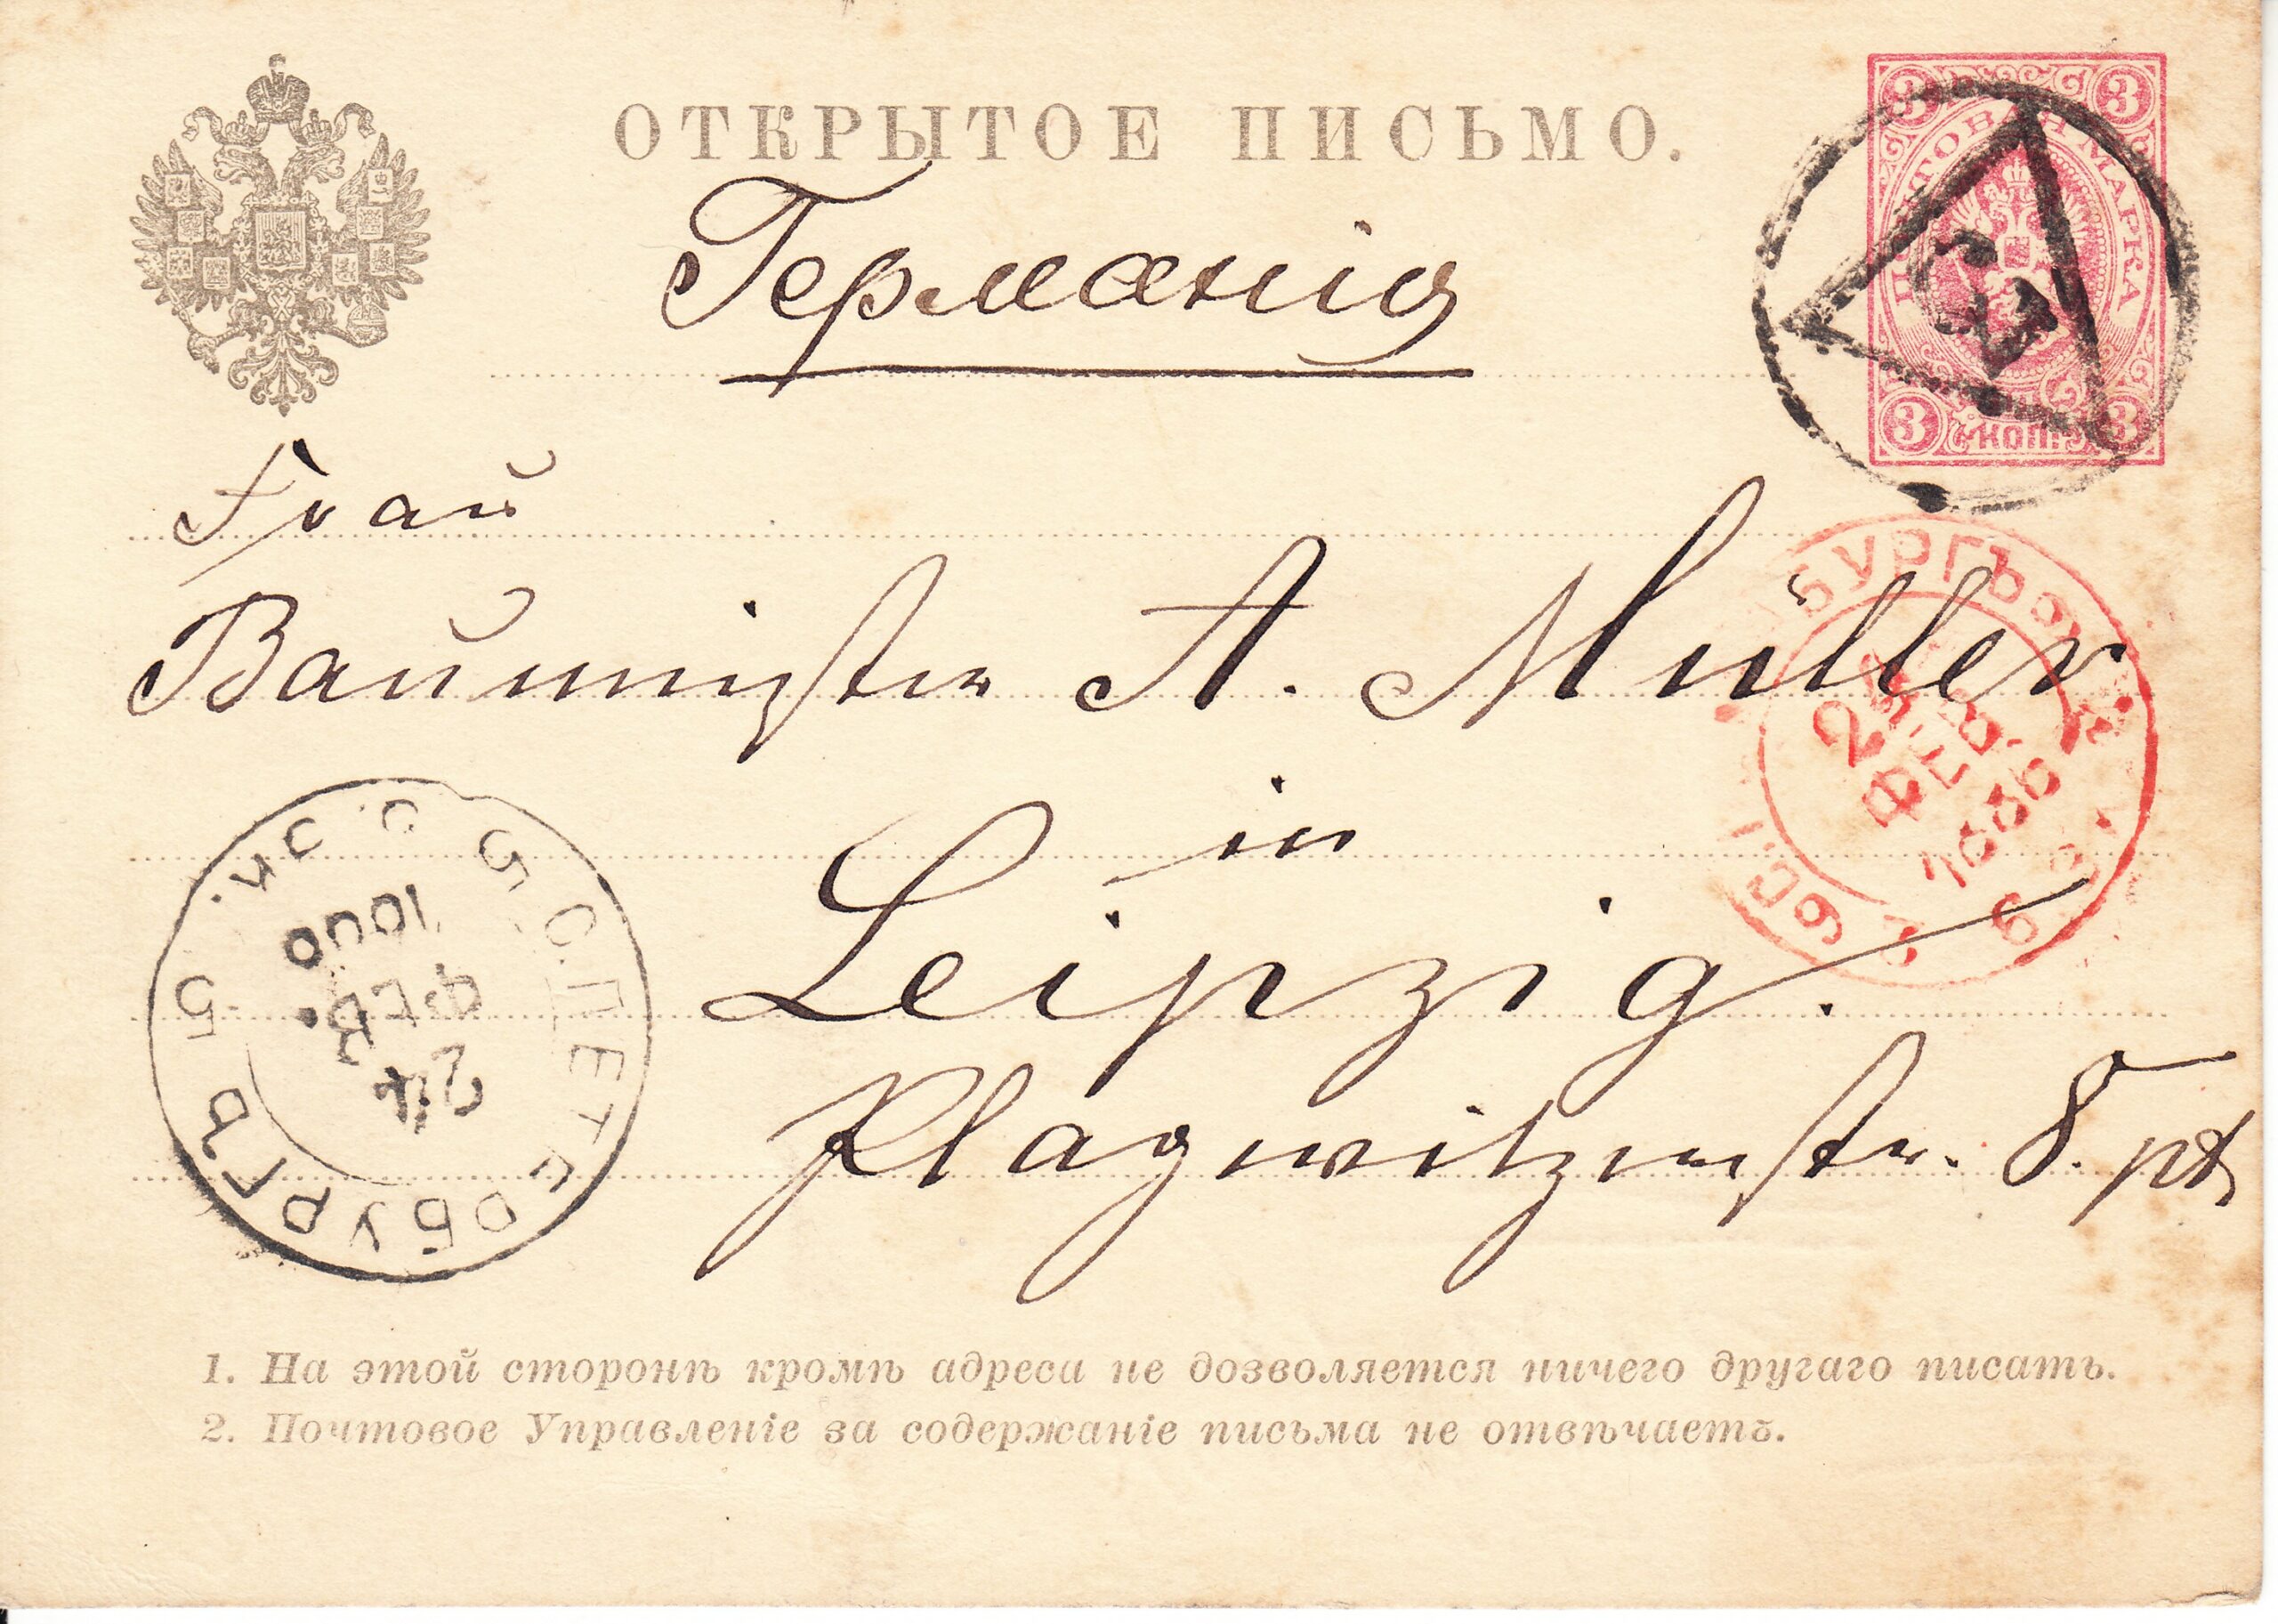 ОТКРЫТОЕ ПИСЬМО.
3 3
ПОЧТОВАЯ МАРКА
3 КОП. 3
Германія
Frau
Baumeister A. Müller
in
Leipzig.
Plagwitzerstr. 8. pt
БУРГЪ
ФЕВ.
С.ПЕТЕРБУРГЪ
24
ФЕВ.
1. На этой сторонѣ кромѣ адреса не дозволяется ничего другаго писать.
2. Почтовое Управленіе за содержаніе письма не отвѣчаетъ.